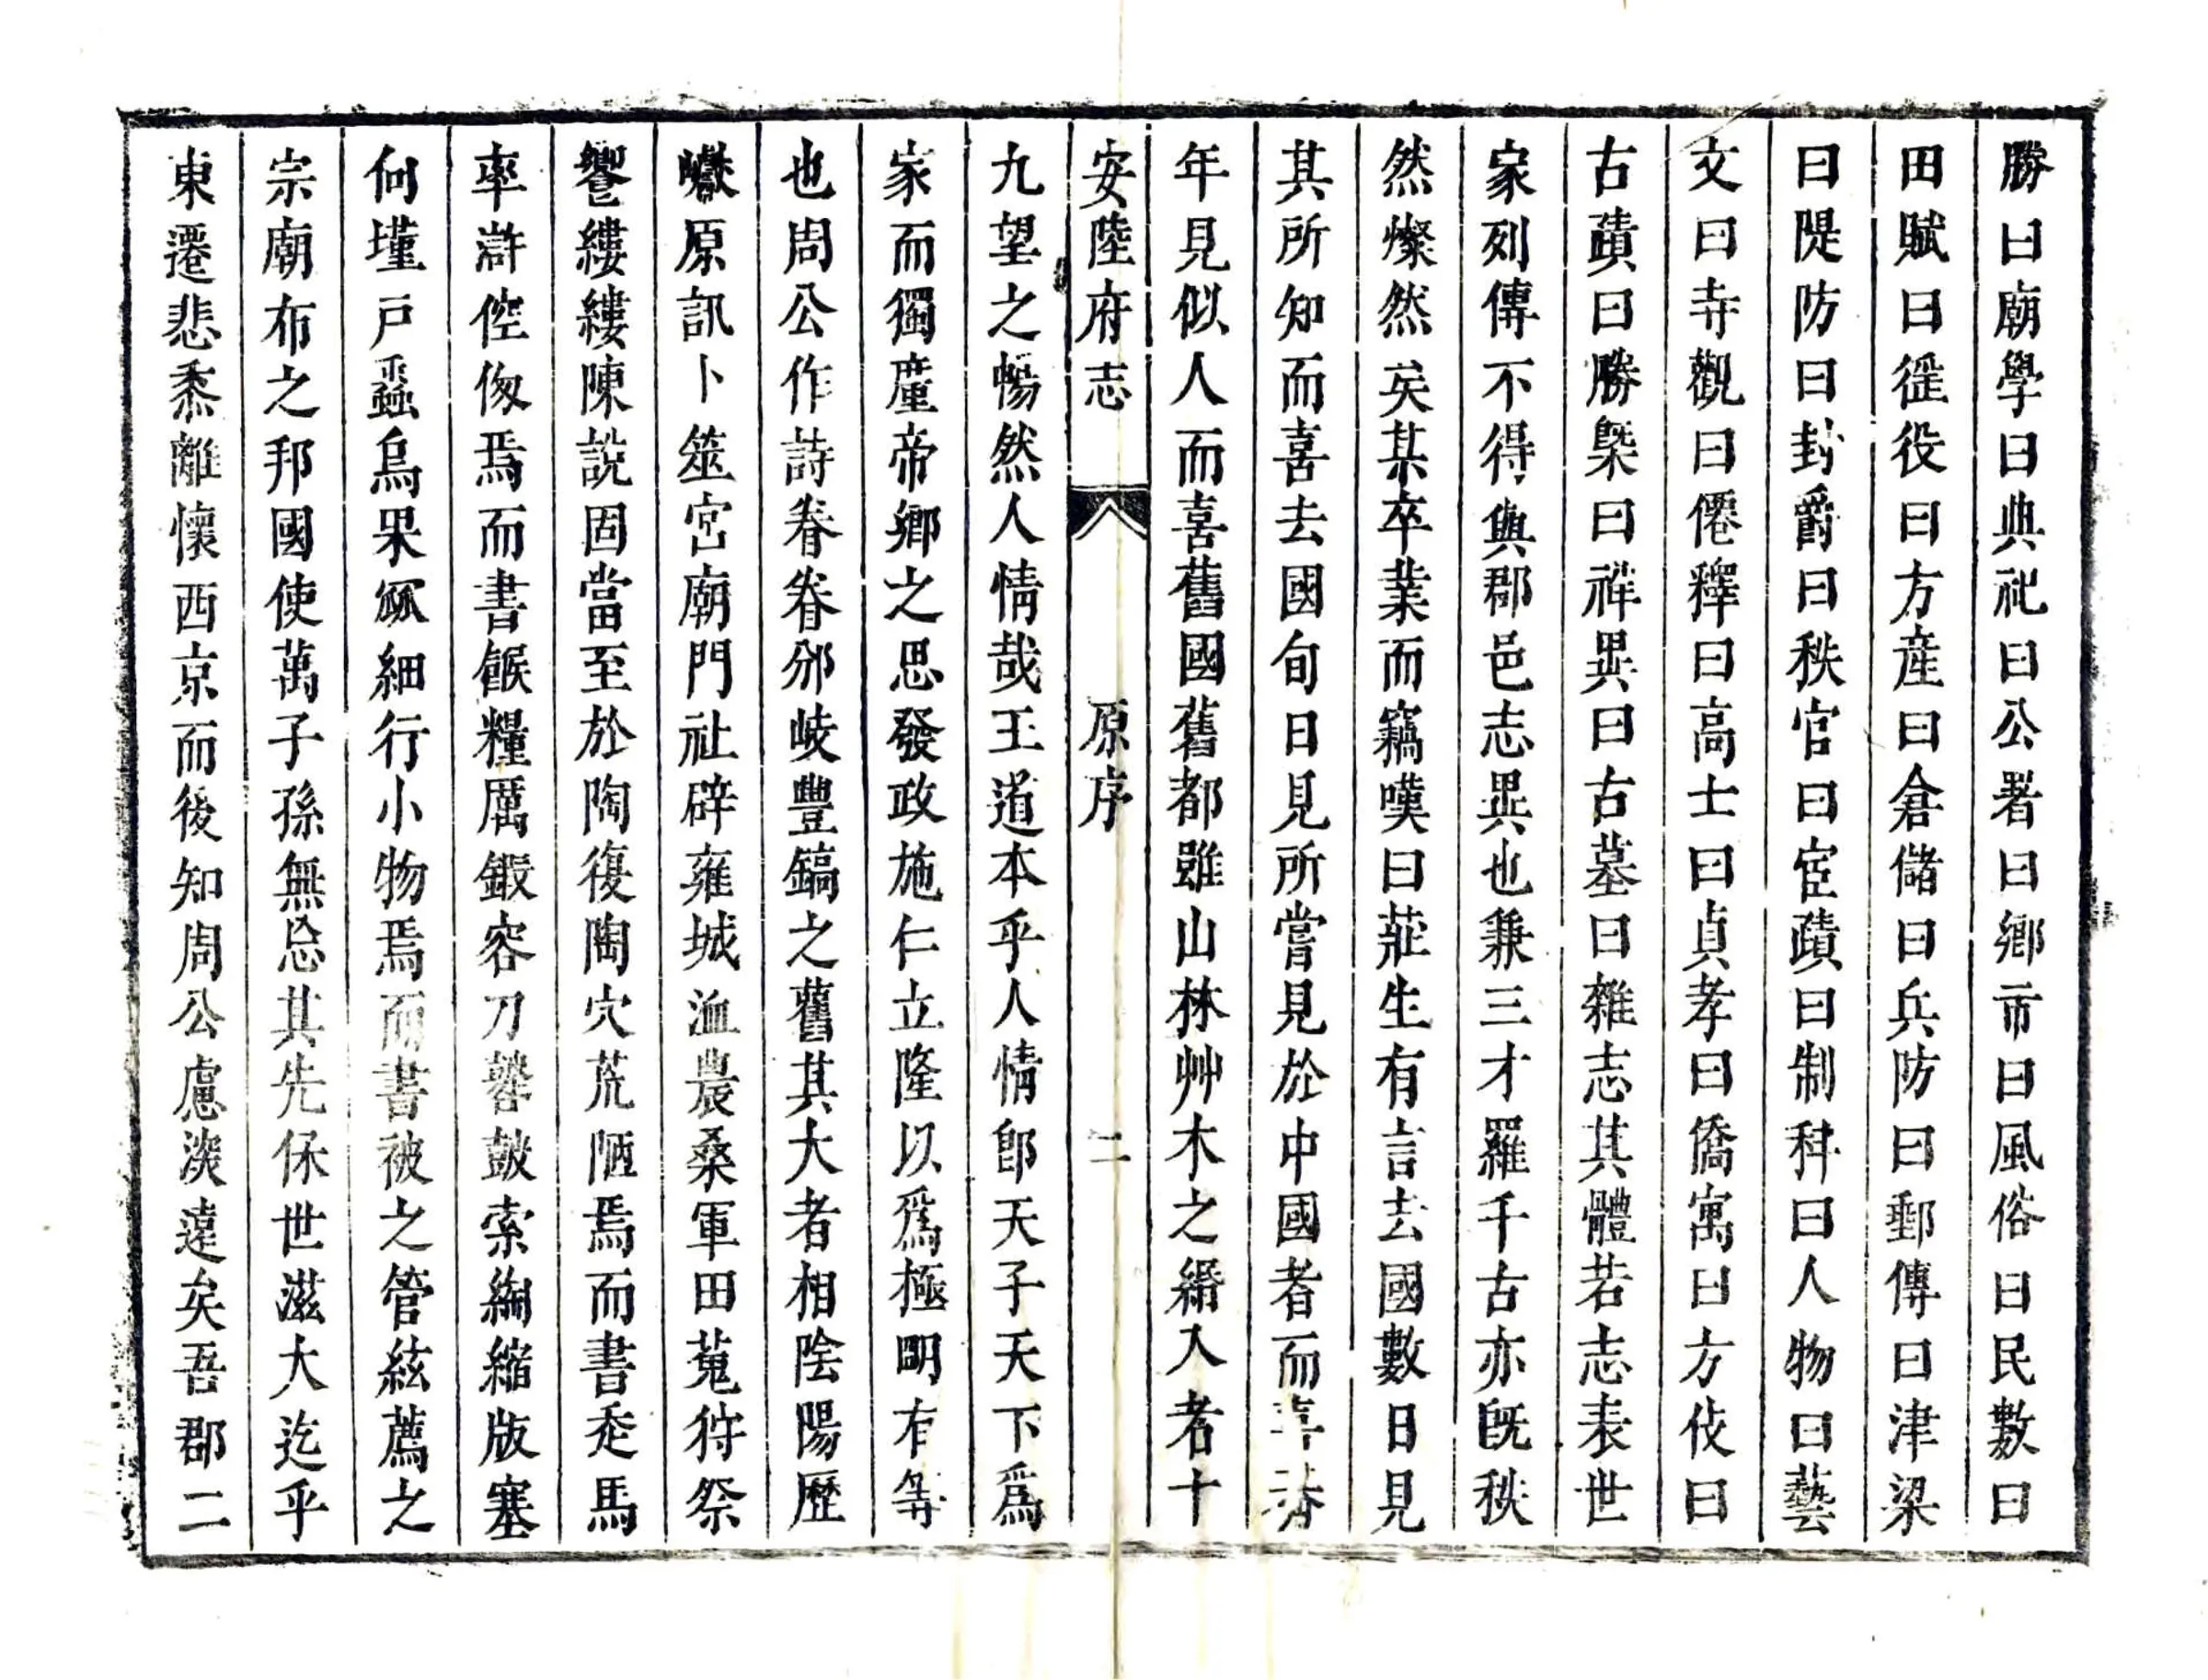 勝曰廟學曰典祀曰公署曰鄉市曰風俗曰民數曰
田賦曰徭役曰方産曰倉儲曰兵防曰郵傳曰津梁
曰隄防曰封爵曰秩官曰宦蹟曰制科曰人物曰藝
文曰寺觀曰僊釋曰高士曰貞孝曰僑寓曰方伎曰
古蹟曰勝槩曰祥異曰古墓曰雜志其體若志表世
家列傳不得與郡邑志異也兼三才羅千古亦旣秩
然燦然矣某卒業而竊嘆曰莊生有言去國數日見
其所知而喜去國旬日見所嘗見於中國者而喜
年見似人而喜舊國舊都雖山林艸木之緡入者十
安陸府志 原序 二
九望之暢然人情哉王道本乎人情卽天子天下爲
家而獨廑帝鄉之思發政施仁立隆以爲極明有等
也周公作詩眷眷邠岐豐鎬之舊其大者相陰陽歷
巘原訊卜筮宮廟門社辟雍城洫農桑軍田蒐狩祭
饗縷縷陳說固當至於陶復陶穴荒陋焉而書走馬
率滸倥偬焉而書餱糧厲鍛容刀鼛鼓索綯縮版塞
向墐戸蟲鳥果蓏細行小物焉而書被之管絃薦之
宗廟布之邦國使萬子孫無忘其先休世滋大迄乎
東遷悲黍離懷西京而後知周公慮深遠矣吾郡二